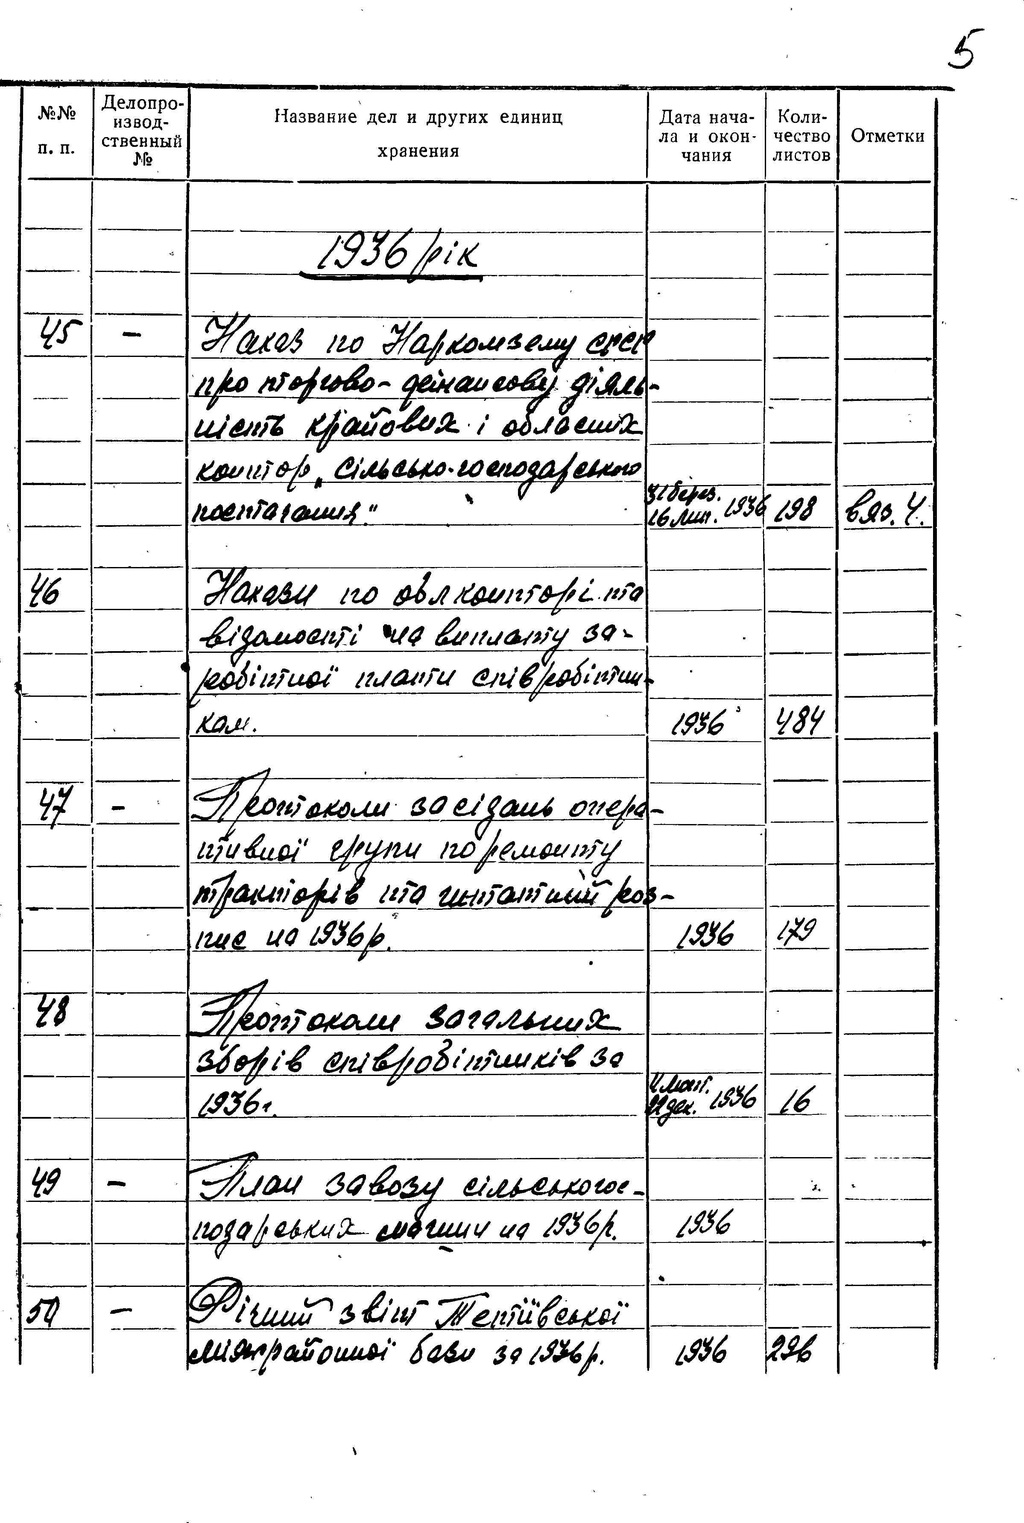 5
№№ п. п.
Делопроизвод-ственный №
Название дел и других единиц хранения
Дата нача-ла и окон-чания
Коли-чество листов
Отметки
1936 рік
45 — Наказ по Наркомзему СРСР
про торгово-фінансову діяль-
ність крайових і обласних
контор „Сільсько-господарського
постачання." 31 берез. 16 лип. 1936 198 в яз. Ч.
46 Накази по облконторі та
відомості на виплату за-
робітної плати співробітни-
кам. 1936 484
47 — Протоколи засідань опера-
тивної групи по ремонту
тракторів та штатний роз-
пис на 1936 р. 1936 179
48 Протоколи загальних
зборів співробітників за
1936 г. 22 дек. 1936 16
49 — План завозу сільськогос-
подарських машин на 1936 р. 1936
50 — Річний звіт Тетіївської
міжрайонної бази за 1936 р. 1936 296